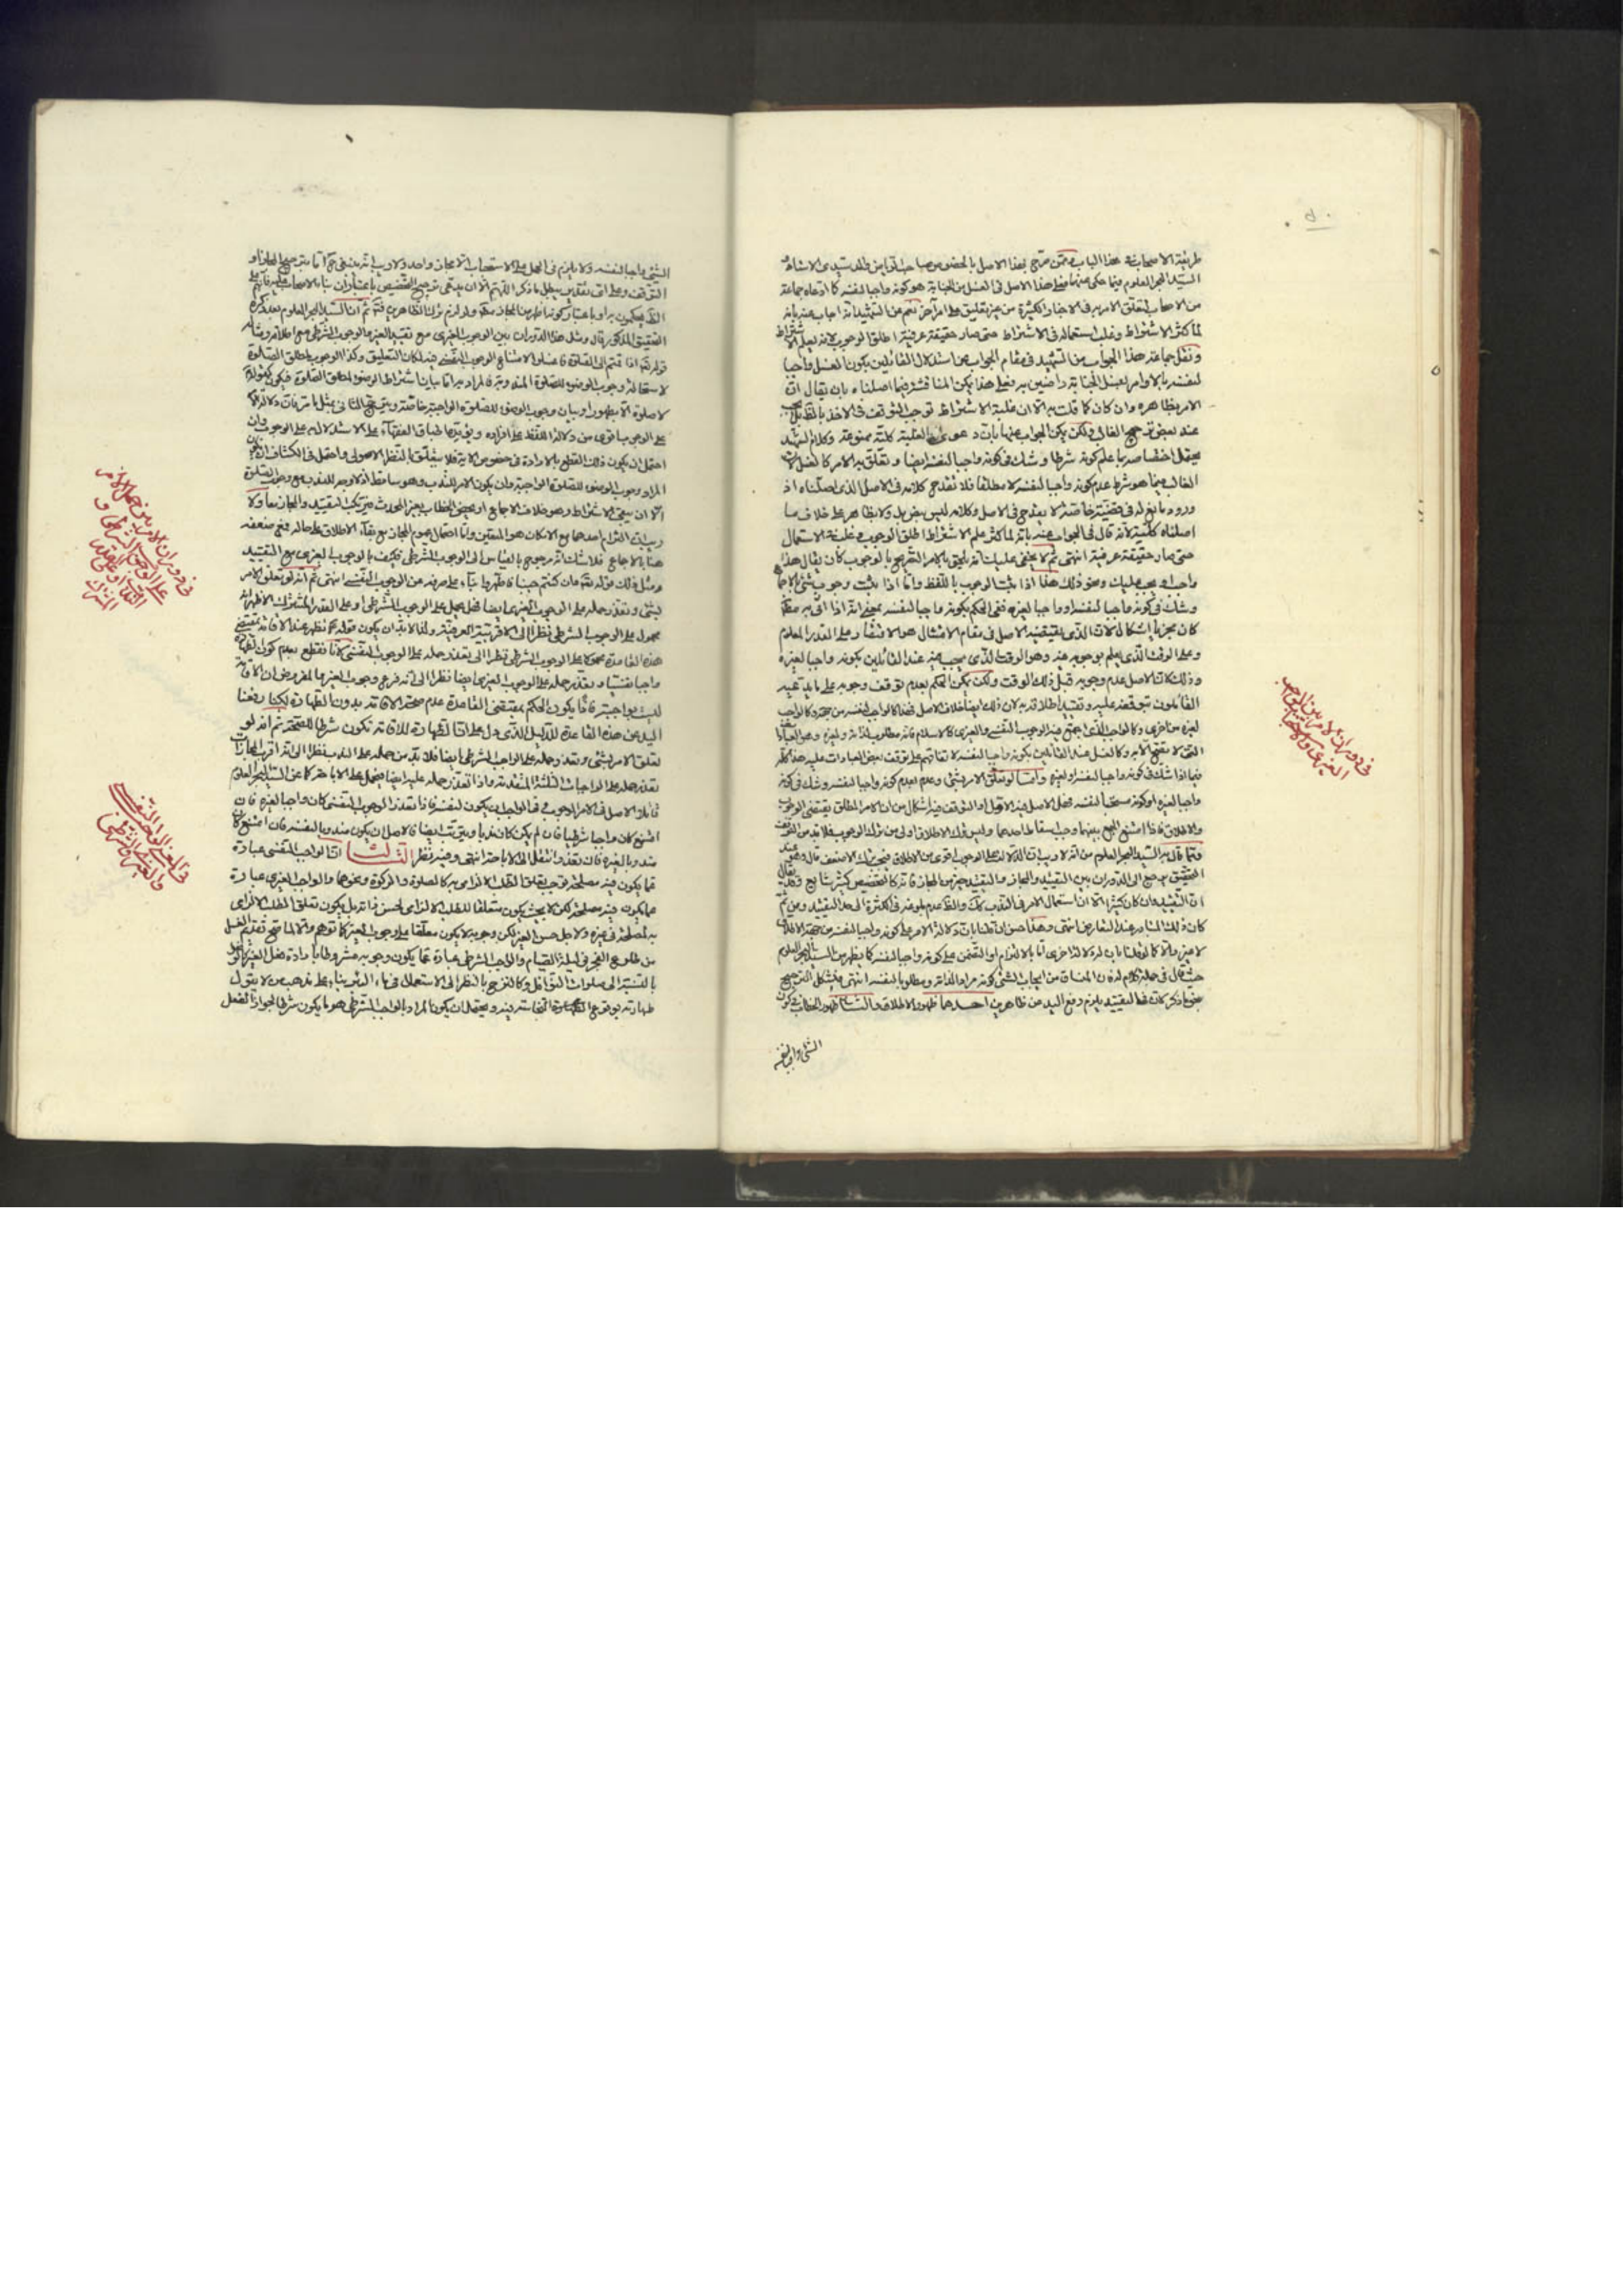 طريقة الاصحاب في هذا الباب وممن صرح بهذا الاصل بالخصوص صاحب
السيد بحر العلوم فيما حكى عنهما فعلى هذا الاصل في الغسل من الجنابة هو كونه واجبا لنفسه كما ادعاه جماعة
من الاصحاب لتعلق الامر به في الاخبار الكثيرة من غير تعليق على امر آخر نعم عن الشهيد انه اجاب عنه بانه
لما كثر الاشتراط وغلب استعماله في الاشتراط حتى صار حقيقة عرفية اطلق الوجوب لانه يعلم الاشتراط
ونقل جماعة هذا الجواب من الشهيد في مقام الجواب عن استدلال القائلين بكون الغسل واجبا
لنفسه بالاوامر بغسل الجنابة راضين به وعلى هذا يمكن المناقشة فيما اصلناه بان يقال ان
الامر بظاهره وان كان كما قلت به الا ان غلبة الاشتراط توجب التوقف في الاخذ بالظ بل يجب
عند بعض ترجيح الغالب ولكن يمكن الجواب عنها بان دعوى الغلبة كلية ممنوعة وكلام الشهيد
يحتمل اختصاصه بما علم كونه شرطا وشك في كونه واجبا لنفسه ايضا وتعلق به الامر كالغسل لان
الغالب فيما هو شرط عدم كونه واجبا لنفسه لا مطلقا فلا يقدح كلامه في الاصل الذي اصلناه اذ
ورود مانع له في قضية خاصة لا يقدح في الاصل وكلامه ليس بنص بل ولا بظاهر على خلاف ما
اصلناه كلية لانه قال في الجواب عنه بانه لما كثر علم الاشتراط اطلق الوجوب وغلبة الاستعمال
حتى صار حقيقة عرفية انتهى ثم لا يخفى عليك انه يلحق بالامر التصريح بالوجوب كان يقال هذا
واجب او يجب عليك ونحو ذلك هذا اذا ثبت الوجوب باللفظ واما اذا ثبت وجوب شئ بالاجماع
وشك في كونه واجبا لنفسه او واجبا لغيره ففي الحكم بكونه واجبا لنفسه بمعنى انه اذا اتى به مطلقا
كان مجزيا اشكال لان الذي يقتضيه الاصل في مقام الامتثال هو الاقتصار على القدر المعلوم
وعلى الوقت الذي يعلم بوجوبه فيه وهو الوقت الذي يجب فيه عند القائلين بكونه واجبا لغيره
وذلك لان الاصل عدم وجوبه قبل ذلك الوقت ولكن يمكن الحكم بعدم توقف وجوبه على ما يدعيه
القائلون بتوقفه عليه وتقييد اطلاقه به لان ذلك ايضا خلاف الاصل فصار كالواجب لنفسه من جهة وكالواجب
لغيره من اخرى وكالواجب الذي اجتمع فيه الوجوب النفسي والغيري كالاسلام فانه مطلوب لذاته ولغيره وهو العبادات
التي لا تصح الا به وكالغسل عند القائلين بكونه واجبا لنفسه لاتفاقهم على توقف بعض العبادات عليه هذا كله
فيما اذا شك في كونه واجبا لنفسه او لغيره واما لو تعلق الامر بشئ وعلم بعدم كونه واجبا لنفسه وشك في كونه
واجبا لغيره او كونه مستحبا لنفسه فهل الاصل فيه الاول او التوقف فيه اشكال من ان الامر المطلق يقتضي الوجوب
والاطلاق فاذا امتنع الجمع بينهما وجب اسقاط احدهما وليس ترك الاطلاق اولى من ترك الوجوب فلا بد من التوقف
ومما قال به السيد بحر العلوم من انه لا ريب ان الدلالة على الوجوب اقوى من الاطلاق فيجب ترك الاضعف قال وهو عند
التحقيق يرجع الى الدوران بين التقييد والمجاز والتقييد خير من المجاز فانه كالتخصيص كثير شايع وقد يقال
ان التقييد وان كان كثيرا الا ان استعمال الامر في الندب كك والظ عدم بلوغه في الكثرة الى حد التقييد ومن ثم
كان ذلك المتبادر عند التعارض انتهى وهذا حسن ان قلنا بان دلالة الامر على كونه واجبا لنفسه من جهة الاطلاق
لا غير والا كما لو قلنا بان له دلالة اخرى اما بالالتزام او التضمن على كونه واجبا لنفسه كما يظهر من السيد بحر العلوم
حيث قال في جملة كلام له فان المنساق من ايجاب الشئ كونه مرادا لذاته ومطلوبا لنفسه انتهى فيشكل الترجيح
بنحو ما ذكر كان في التقييد يلزم رفع اليد عن ظاهرين احدهما ظهور الاطلاق والثاني ظهور الخطاب في كون
الشئ واجبا لنفسه
في دوران الامر بين الواجب
الغيري والمستحب النفسي
الشئ واجبا لنفسه ولا يلزم في الحمل على الاستحباب الا مجاز واحد ولا ريب انه ينبغي ح اما ترجيح المجاز او
التوقف وعلى اي تقدير يبطل ما ذكر اللهم الا ان يدعى ترجيح التخصيص باعتبار ان بناء الاصحاب عليه فانهم على
الظ يحكمون به او باعتبار كونه اظهر من المجاز مطلقا ولو لزم ترك الظاهرين فتأمل ثم ان السيد بحر العلوم بعد ذكره
التحقيق المذكور قال ومثل هذا الدوران بين الوجوب الغيري مع تقييد الغير والوجوب الشرطي مع اطلاقه ومثاله
قوله تعالى اذا قمتم الى الصلوة فاغسلوا لامتناع الوجوب النفسي فيه لمكان التعليق وكذا الوجوب لمطلق الصلوة
لاستحالة وجوب الوضوء للصلوة المندوبة فالمراد به اما بيان اشتراط الوضوء لمطلق الصلوة فيكون كقوله
لا صلوة الا بطهور او بيان وجوب الوضوء للصلوة الواجبة خاصة ويترجح الثاني بمثل ما مر فان دلالة الامر
على الوجوب اقوى من دلالة اللفظ على افراده ويؤيده اطباق الفقهاء على الاستدلال به على الوجوب وان
احتمل ان يكون ذلك للقطع بالارادة في خصوص الاية فلا يتعلق بالنظر الاصولي واحتمل في الكشاف ان يكون
المراد وجوب الوضوء للصلوة الواجبة وان يكون الامر للندب وهو ساقط اذ لا وجه للندب مع وجوب الصلوة
الا ان ينفى الاشتراط وهو خلاف الاجماع او يخص الخطاب بغير المحدث فيرتكب التقييد والمجاز معا ولا
ريب ان التزام احدهما مع الامكان هو المتعين واما احتمال عموم المجاز مع بقاء الاطلاق على حاله فمع ضعفه
هنا بالاجماع فلا شك انه مرجوح بالقياس الى الوجوب الشرطي فكيف بالوجوب الغيري مع التقييد
ومثل ذلك قوله تعالى وان كنتم جنبا فاطهروا بناء على صرفه عن الوجوب النفسي انتهى ثم انه لو تعلق الامر
بشئ وتعذر حمله على الوجوب الغيري ايضا فهل يحمل على الوجوب الشرطي او على القدر المشترك الاظهر انه
محمول على الوجوب الشرطي نظرا الى الاقربية العرفية
هذه القاعدة محمولا على الوجوب الشرطي نظرا الى تعذر حمله على الوجوب النفسي لانا نقطع بعدم كون الطهارة
واجبا نفسيا وتعذر حمله على الوجوب الغيري ايضا نظرا الى انه فرع وجوب الغير والمفروض ان الاقامة
ليست بواجبة فاذا يكون الحكم بمقتضى القاعدة عدم صحة الاقامة بدون الطهارة لكنا رفعنا
اليد عن هذه القاعدة للدليل الذي دل على ان الطهارة للاقامة لا تكون شرطا للصحة ثم انه لو
تعلق الامر بشئ وتعذر حمله على الواجب الشرطي ايضا فلا بد من حمله على الندب نظرا الى انه اقرب المجازات
تعذر حمله على الواجبات الثلثة المتقدمة واذا تعذر حمله عليه ايضا فيحمل على الاباحة كما عن السيد بحر العلوم
قائلا الاصل في الامر الوجوب وفي الواجب ان يكون لنفسه فاذا تعذر الوجوب النفسي كان واجبا لغيره فان
امتنع كان واجبا شرطيا فان لم يكن كان ندبا ويترتب ايضا فالاصل ان يكون مندوبا لنفسه فان امتنع كان
مندوبا لغيره فان تعذر انتقل الى الاباحة انتهى وفيه نظر الثالث ان الواجب النفسي عبارة
عما يكون فيه مصلحة توجب تعلق الطلب الالزامي به كالصلوة والزكوة ونحوهما والواجب الغيري عبارة
عما يكون فيه مصلحة لكن لا بحيث يكون متعلقا للطلب الالزامي لحسن ذاته بل يكون تعلق الطلب الالزامي
به لمصلحة في غيره ولاجل حسن الغير لكن وجوبه لا يكون معلقا على وجوب الغير كما توهم والا لما صح تقديم الغسل
من طلوع الفجر في ليلة الصيام والواجب الشرطي عبارة عما يكون وجوبه مشروطا بارادة فعل الغير كالوضوء
بالنسبة الى صلوات النوافل وكالنزح بالنظر الى الاستعمال في ماء البئر بناء على مذهب من لا يقول
طهارته بوقوع النجاسة فيه ويحتمل ان يكون المراد بالواجب الشرطي هو ما يكون شرطا لجواز الفعل
في دوران الامر بين حمل الامر
على الوجوب الشرطي و
القدر
المشترك
في الفرق بين الواجب النفسي
والغيري والشرطي